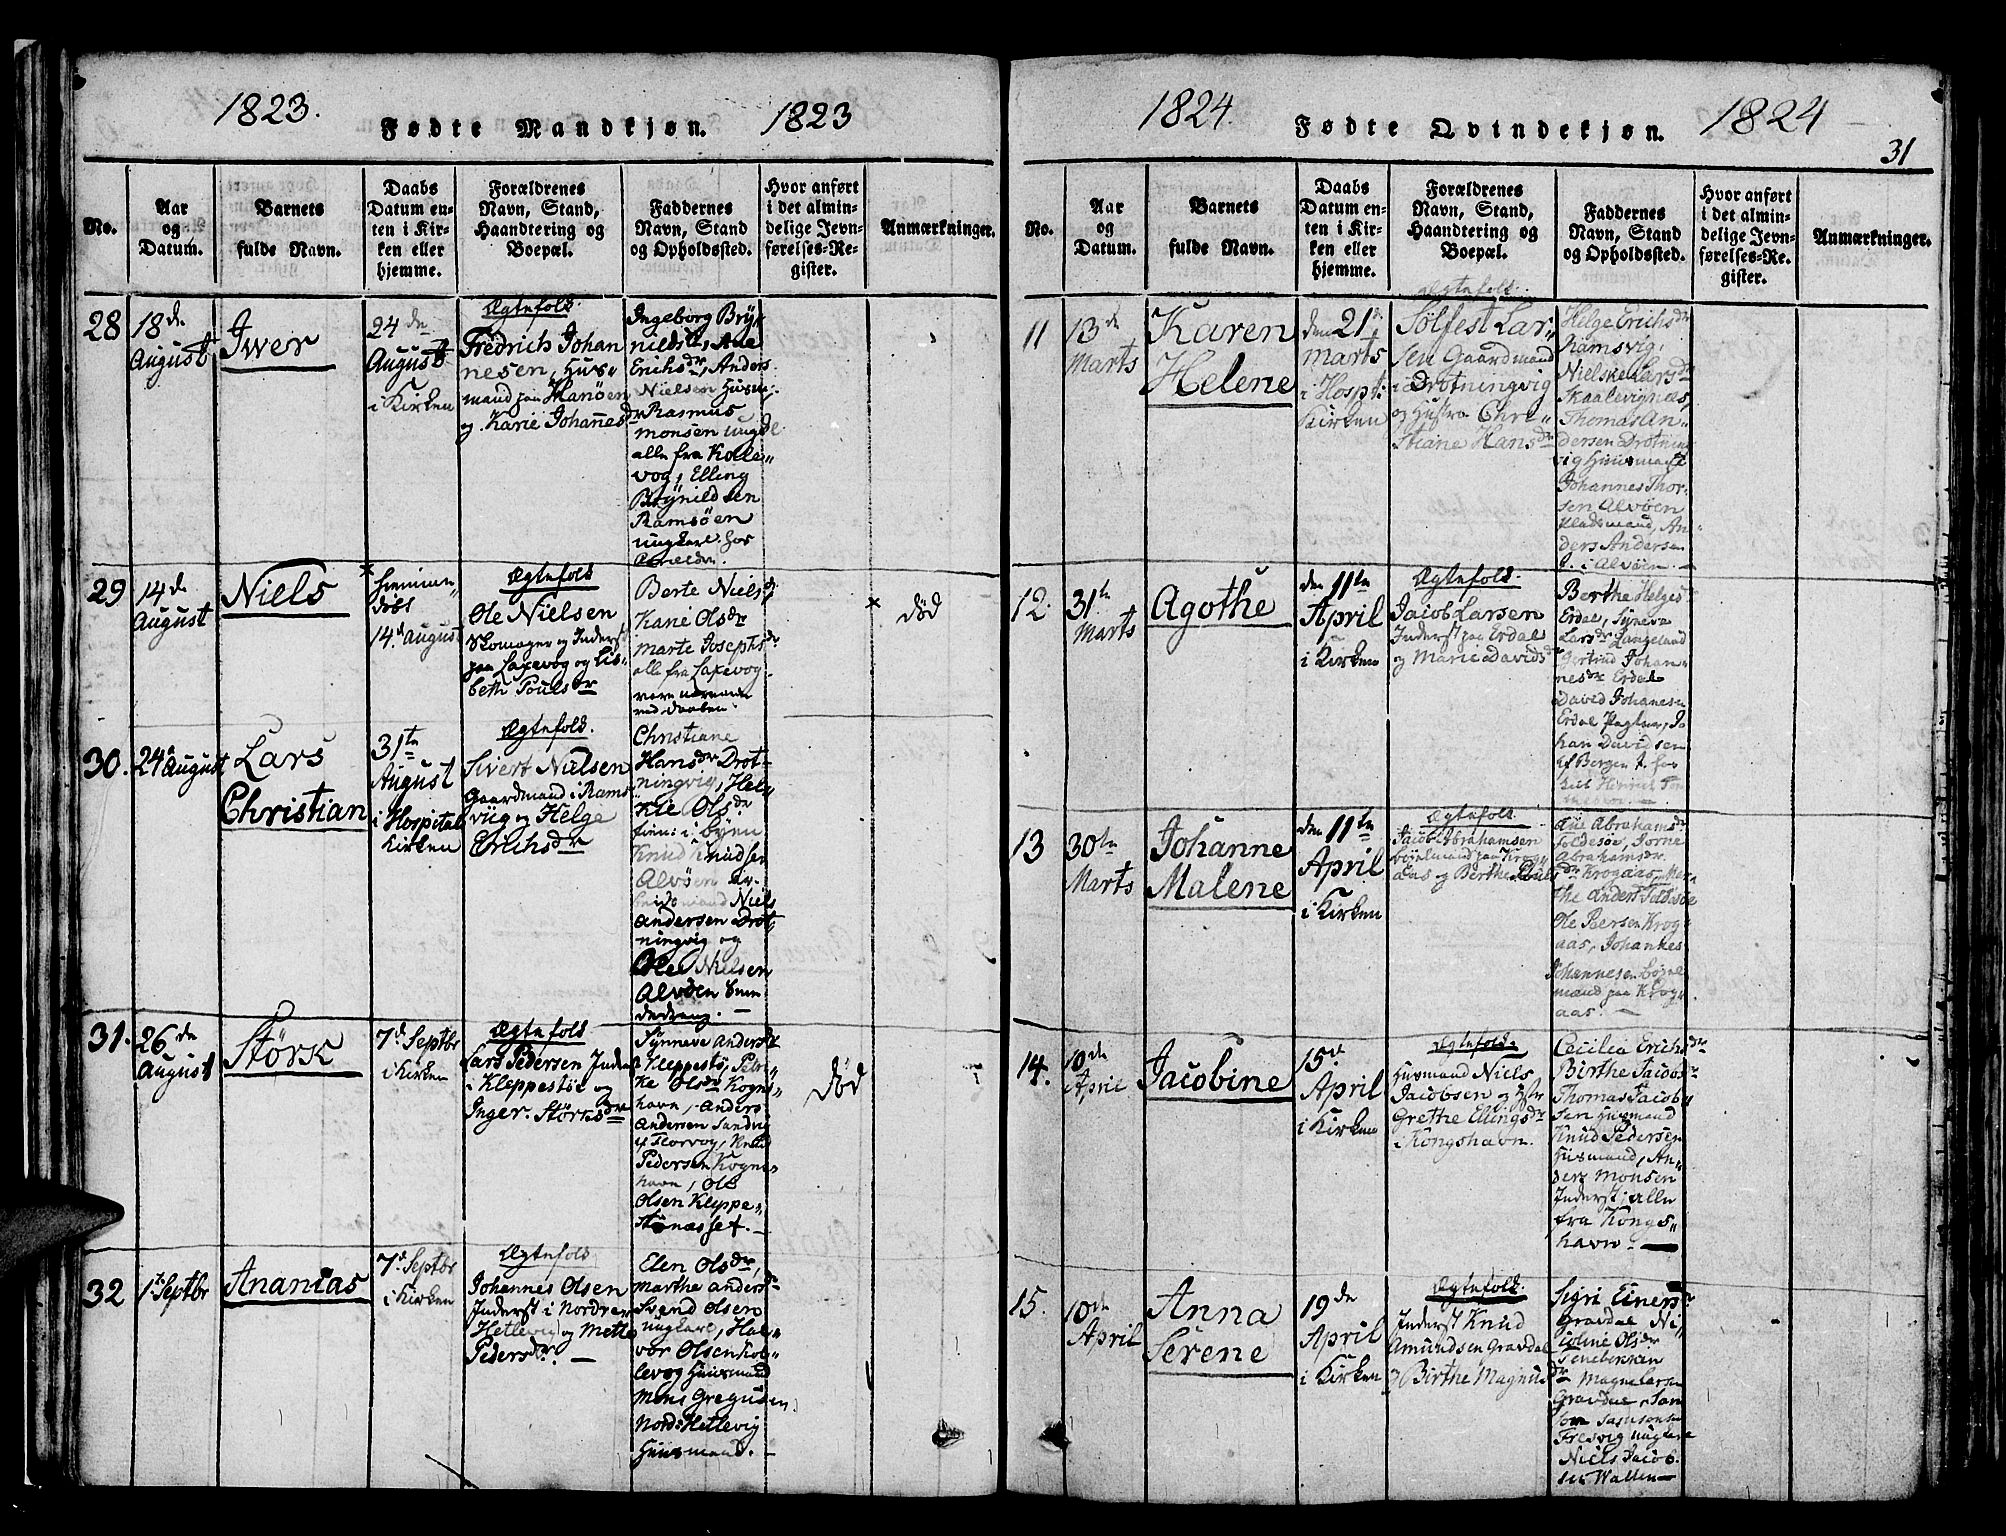 1823.
Fødte Mandkjøn.
1823
No.
Aar
og
Datum.
Barnets
fulde Navn.
Daabs
Datum en-
ten i Kir-
ken eller
hjemme.
Forældrenes
Navn, Stand,
Haandtering og
Boepæl.
Faddernes
Navn, Stand
og Opholdssted.
Hvor anført
i det almin-
delige Jevn-
førelses-Re-
gister.
Anmærkninger.
28
18de
August
Iwer
24de
August
i Kirken
Ægtefolk
Fredrich Johan
nesen, Huus-
mand paa Hanøen
og Karie Johannesdr
Ingeborg Bry-
nildsdr, Ane
Erichsdr, Anders
Nielsen Huusm:
Rasmus
Monsen ungde
alle fra Kolle-
vog, Elling
Brynildsen
Ramsøen
ungkarl hos
29
14de
August
Niels
hjemme
døbt
14d August
Ægtefolk
Ole Nielsen
Skomager og Inderst
paa Laxevog og Lis-
beth Poulsdr
Berte Nielsdr
Kari Olsdr
Marte Josephsdr
alle fra Laxevog
vare nærværende
ved Daaben.
død
30.
24d August
Lars
Christian
31te
August
i Hospital
Kirken
Ægtefolk.
Sivert Nielsen
Gaardmand i Rams-
viig og Helge
Erichsdr
Christiane
Hansdr Drot-
ningvig, Hel-
Ole Olsdr
Knud Knudsen
Alvøen Ar-
beidsmand Niels
Andersen Drot-
ningvig og
Ole Nielsen
Alvøen
31.
26de
August
Størk
7d Septbr
i Kirken
Ægtefolk
Lars Pedersen Inder
i Kleppestøe og
Inger Størksdr
Synneve Andersdr
Kleppestø, Petri-
ke Olsdr Kogns-
havn, Anders
Andersen Sandvig
Florvog, Knud
Pedersen Kogns-
havn, Ole
Olsen Kleppe-
død
32
1ste Septbr
Ananias
7d Septbr
i Kirken
Ægtefolk
Johannes Olsen
Inderst i Nordre
Hetlevig og Mette
Pedersdr. —
Elen Olsdr,
Marthe Andersdr
Svend Olsen
ungkarl, Hal-
vor Olsen Kol-
levog Huusmand
Mons Gregusen
Nord-Hetlevig
Huusmand. —
1824
Fødte Qvindekjøn.
1824
31
No.
Aar
og
Datum.
Barnets
fulde Navn.
Daabs
Datum en-
ten i Kir-
ken eller
hjemme.
Forældrenes
Navn, Stand,
Haandtering og
Boepæl.
Faddernes
Navn, Stand
og Opholdssted.
Hvor anført
i det almin-
delige Jevn-
førelses-Re-
gister.
Anmærkninger.
11
13de
Marts
Karen
Helene
den 21d
Marts
i Hospt:
Kirken
Ægtefolk.
Sølfest Lar-
sen Gaardmand
i Drotningvig
og Hustru Chri-
stiane Hansdr
Helge Erichsdr
Ramsvig,
Nielske Larsdr
Skaalevignæs,
Thomas An-
dersen Drotning
vig Huusmand
Johannes Thor-
sen Alvøen
Pladsmand, An-
ders Andersen
i Alvøen. —
12.
31te
Marts
Agothe
den 11te
April
i Kirken
Ægtefolk.
Jacob Larsen
Inderst paa Erdal
og Marie Davidsdr
Berthe Helges
Erdal, Syneva
Larsdr Langeland
Gertrud Johan-
nesdr Erdal
David Johanesen
Erdal
Johan Davidsen
Bergen
13
30te
Marts
Johanne
Malene
den 11te
April
i Kirken
Ægtefolk
Jacob Abrahamsen
Bøjelmand paa Krog-
aas og Berthe Pouls
Ane Abrahamsdr
Foldesøe,
Abrahamsdr
Krogaas, Mar-
the Anders Foldesøe
Ole Peersen Krog-
aas, Johannes
Johannesen
mand paa Krog-
aas. —
14.
10de
April
Jacobine
15de
April
i Kirken
Ægtefolk.
Huusmand Niels
Jacobsen og Hstr
Grethe Ellingsdr
i Kongshavn.
Cecilia Erichsdr
Birthe Jacobsdr
Thomas Jacob-
sen Huusmand
Knud Pedersen
Huusmand, An-
ders Monsen
Inderst, alle
fra Kongs-
havn. —
15.
10de
April
Anna
Serene
19de
April
i Kirken
Ægtefolk.
Inderst Knud
Amundsen Gravdal
og Birthe Magnusdr
Sigri Einersdr
Gravdal Ni-
coline Olsdr
Magne Larsen
Gravdal, Sam-
son Samsonsen
ungkarl
Niels Jacob-
sen Wallen —